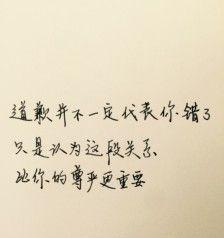 道歉并不一定代表你错了
只是认为这段关系
比你的尊严更重要